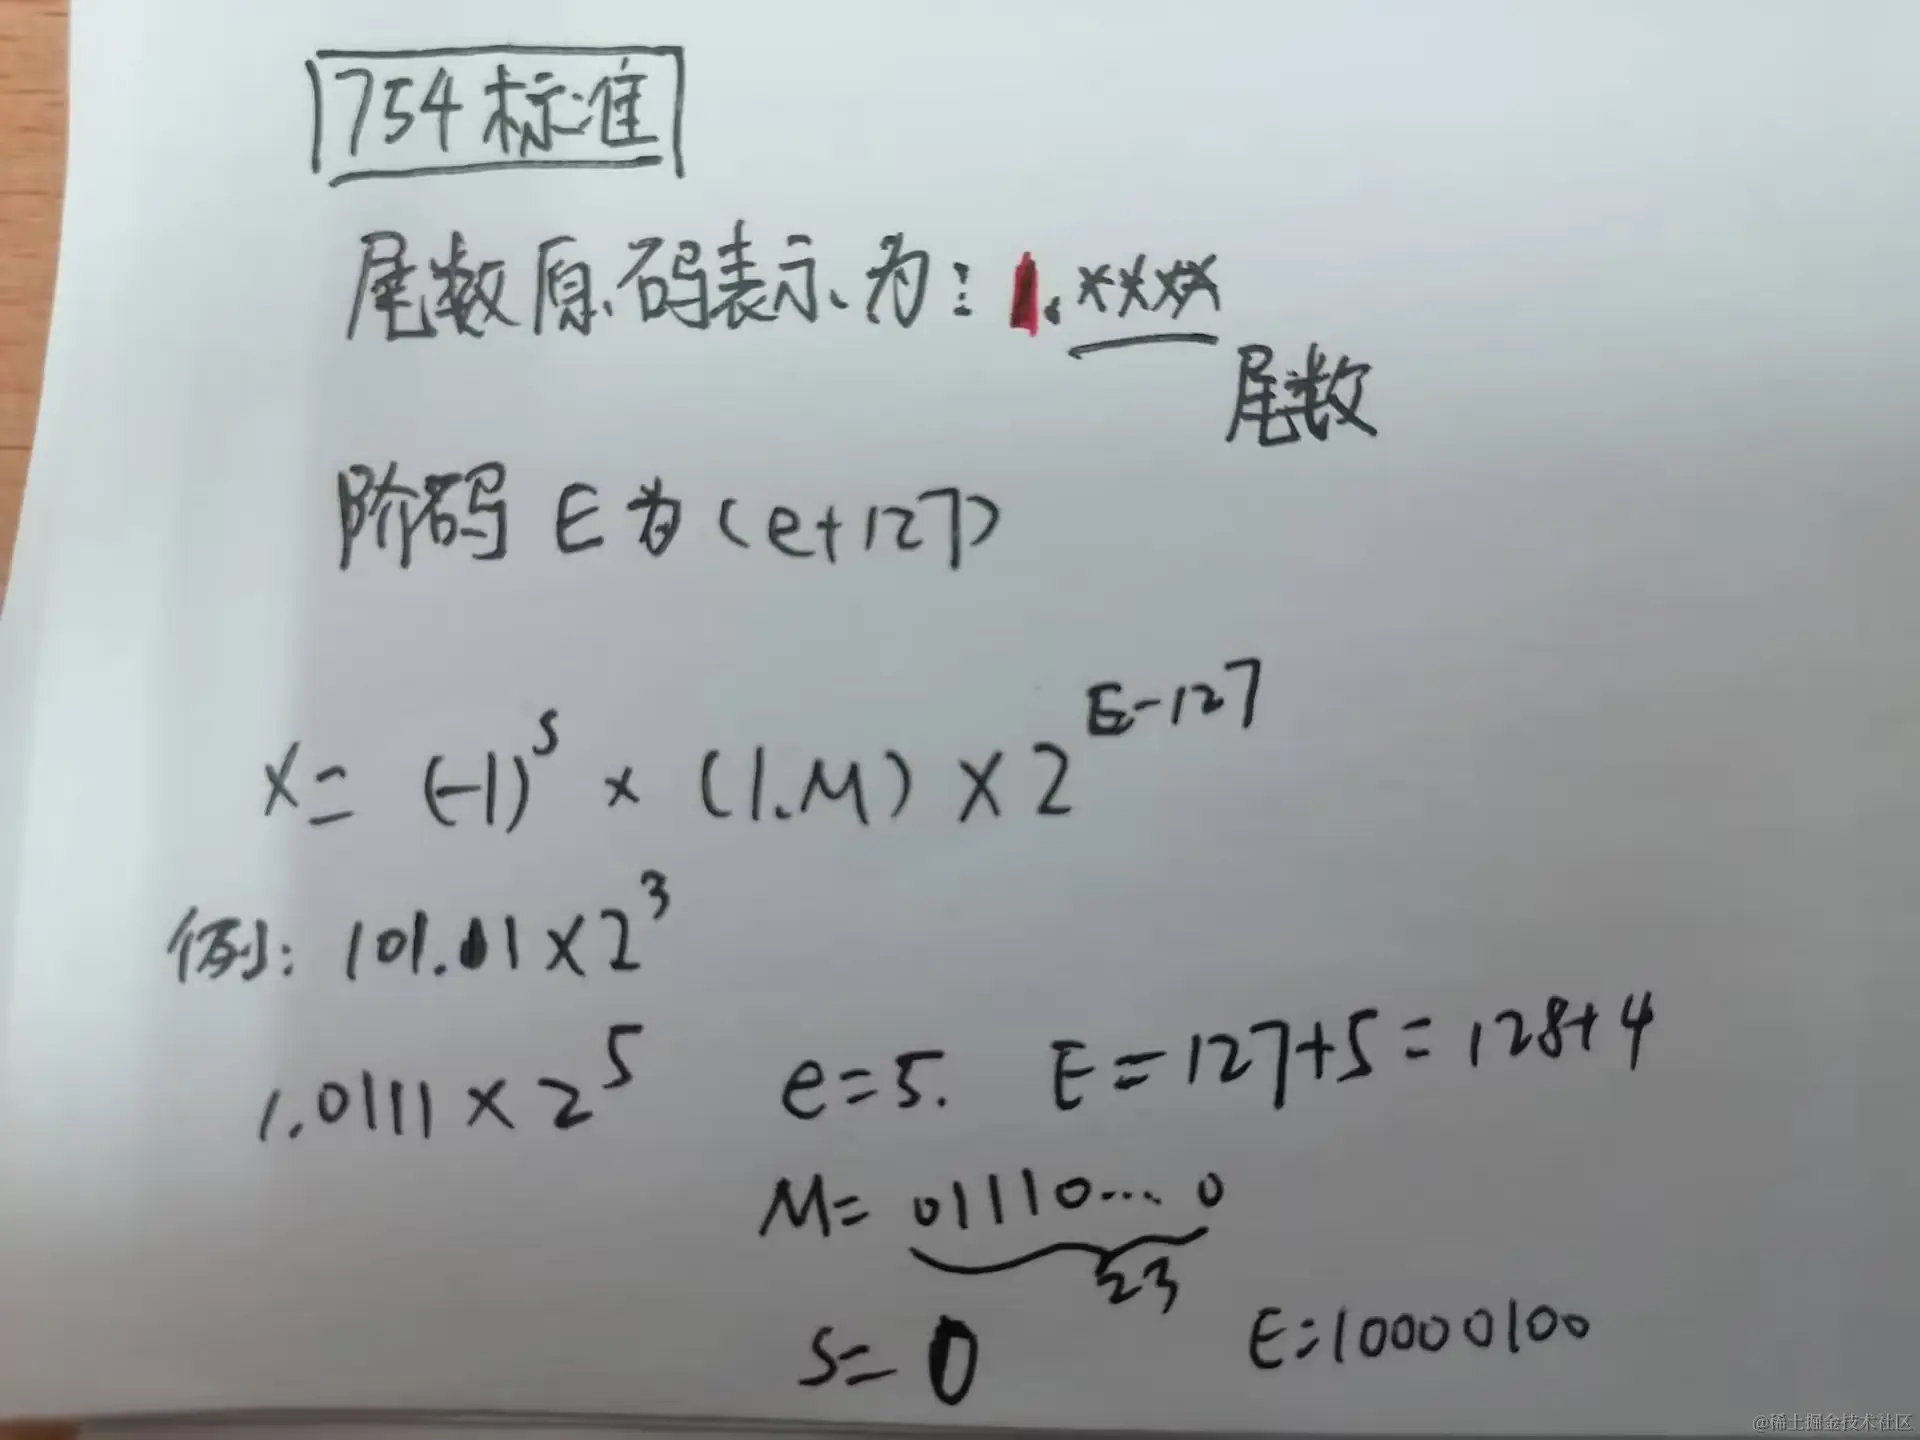 754标准
尾数原码表示为：1.××××
尾数
阶码 E为(e+127)
x= (-1)^s × (1.M) × 2^E-127
例：101.11×2^3
1.0111×2^5 e=5. E=127+5=128+4
M=01110...0
23
S=0 E=10000100
@稀土掘金技术社区